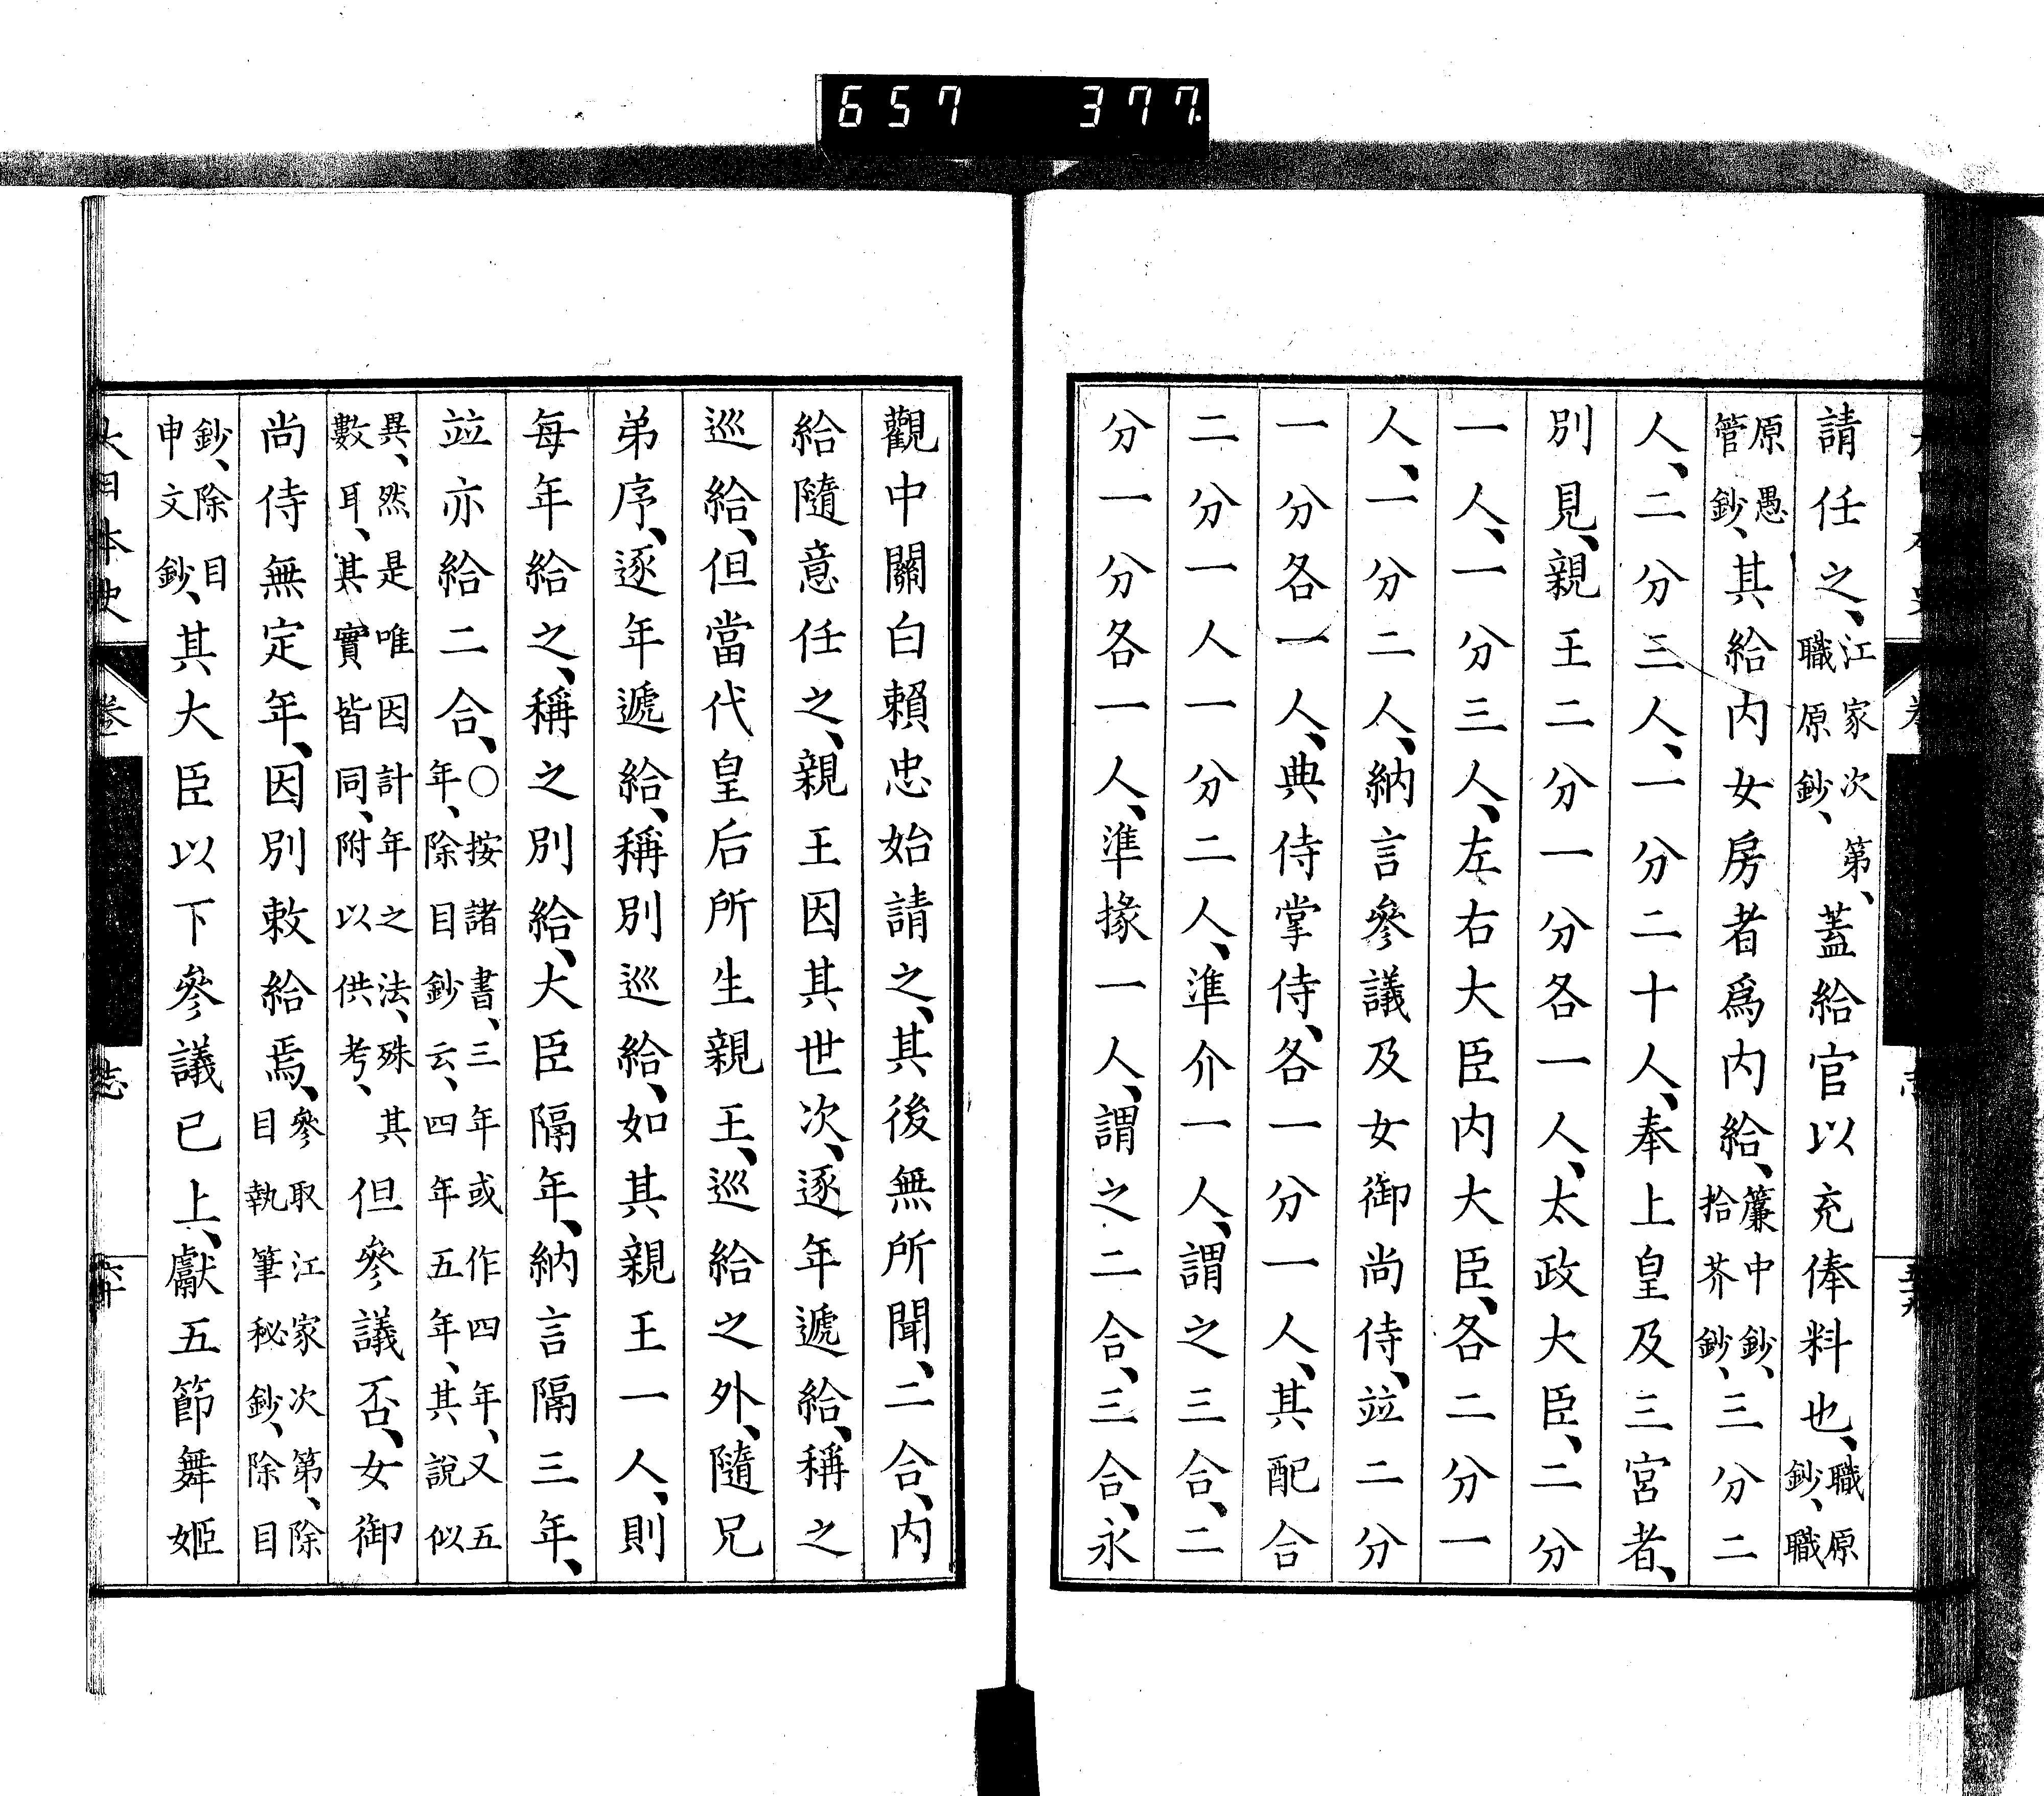 657 377.
請任之、江家次第、職原鈔、蓋給官以充俸料也、職原鈔、職
原愚管鈔、其給內女房者爲內給、簾中鈔、拾芥鈔、三分二
人、二分三人、一分二十人、奉上皇及三宮者、
別見、親王二分一分各一人、太政大臣、二分
一人、一分三人、左右大臣內大臣、各二分一
人、一分二人、納言參議及女御尚侍、竝二分
一分各一人、典侍掌侍、各一分一人、其配合
二分一人一分二人、準介一人、謂之三合、二
分一分各一人、準掾一人、謂之二合、三合、永
觀中關白賴忠始請之、其後無所聞、二合、內
給隨意任之、親王因其世次、逐年遞給、稱之
巡給、但當代皇后所生親王、巡給之外、隨兄
弟序、逐年遞給、稱別巡給、如其親王一人、則
每年給之、稱之別給、大臣隔年、納言隔三年、
竝亦給二合、○按諸書、三年或作四年、又五年、除目鈔云、四年五年、其說似
異、然是唯因計年之法、殊其數耳、其實皆同、附以供考、但參議否、女御
尚侍無定年、因別敕給焉、參取江家次第、除目執筆秘鈔、除目
鈔、除目申文鈔、其大臣以下參議已上、獻五節舞姬
大日本史 卷 志